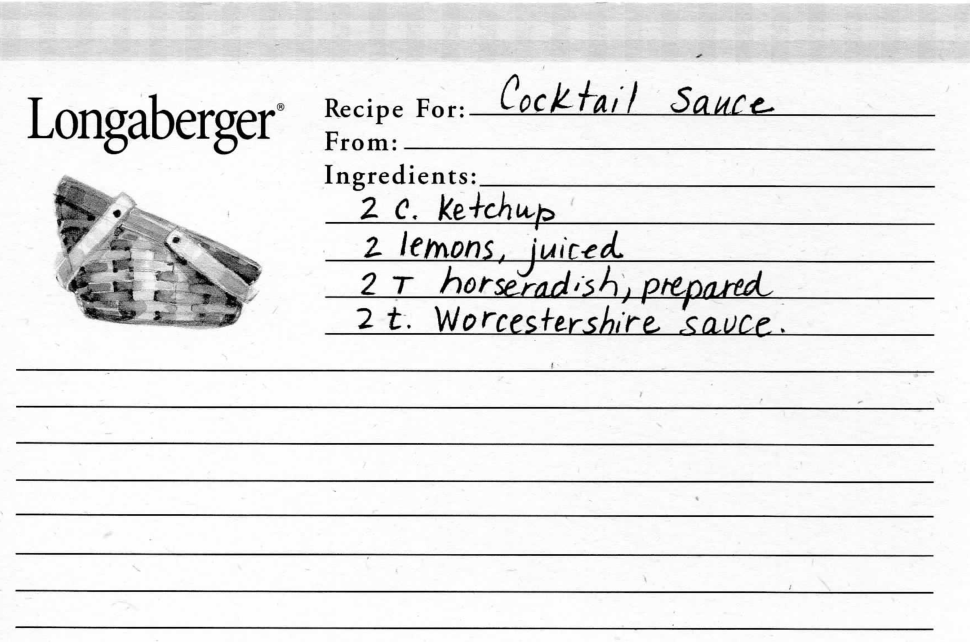 Longaberger®
Recipe For: Cocktail Sauce
From:
Ingredients:
2 C. Ketchup
2 lemons, juiced
2 T horseradish, prepared
2 t. Worcestershire sauce.